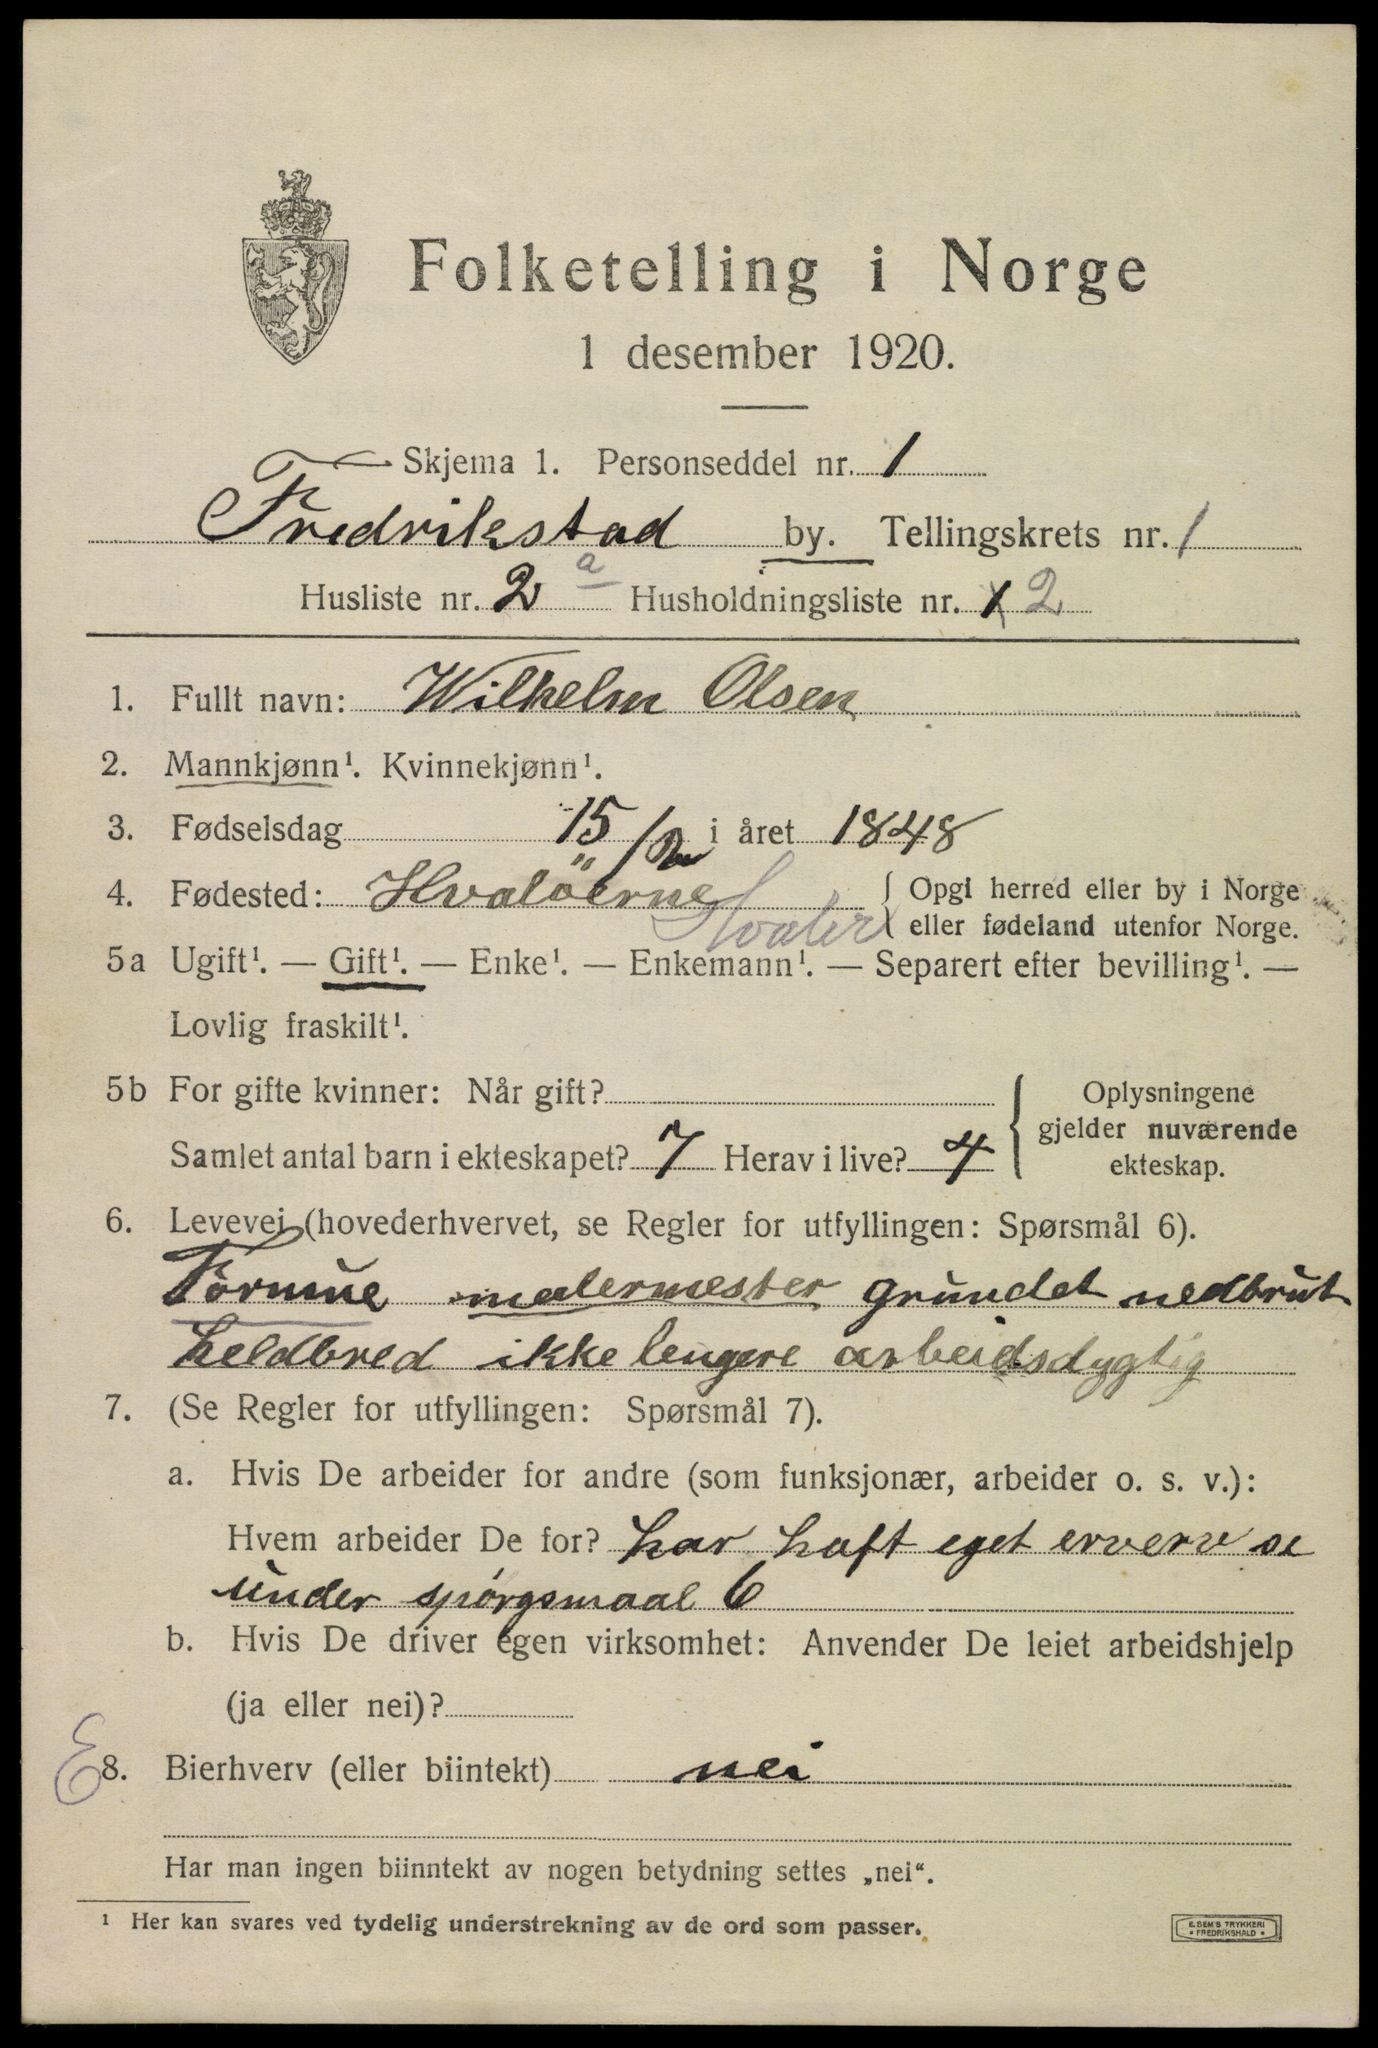 Folketelling i Norge
1 desember 1920.
Skjema 1. Personseddel nr. 1
Fredrikstad by. Tellingskrets nr. 1
Husliste nr. 2 a Husholdningsliste nr. 1 2
1. Fullt navn: Wilhelm Olsen
2. Mannkjønn¹. Kvinnekjønn¹.
3. Fødselsdag 15/2 i året 1848
4. Fødested: Hvaløerne { Opgi herred eller by i Norge
Hvaler eller fødeland utenfor Norge.
5a Ugift¹. — Gift¹. — Enke¹. — Enkemann¹. — Separert efter bevilling¹. —
Lovlig fraskilt¹.
5b For gifte kvinner: Når gift?
Samlet antal barn i ekteskapet? 7 Herav i live? 4
Oplysningene
gjelder nuværende
ekteskap.
6. Levevei (hovederhvervet, se Regler for utfyllingen: Spørsmål 6).
Formue malermester grundet nedbrut
heldbred ikke lengere arbeidsdygtig
7. (Se Regler for utfyllingen: Spørsmål 7).
a. Hvis De arbeider for andre (som funksjonær, arbeider o. s. v.):
Hvem arbeider De for? har haft eget erverv se
under spørgsmaal 6
b. Hvis De driver egen virksomhet: Anvender De leiet arbeidshjelp
(ja eller nei)?
E
8. Bierhverv (eller biintekt) nei
Har man ingen biinntekt av nogen betydning settes „nei“.
¹ Her kan svares ved tydelig understrekning av de ord som passer.
E. SEM'S TRYKKERI
• FREDRIKSHALD •